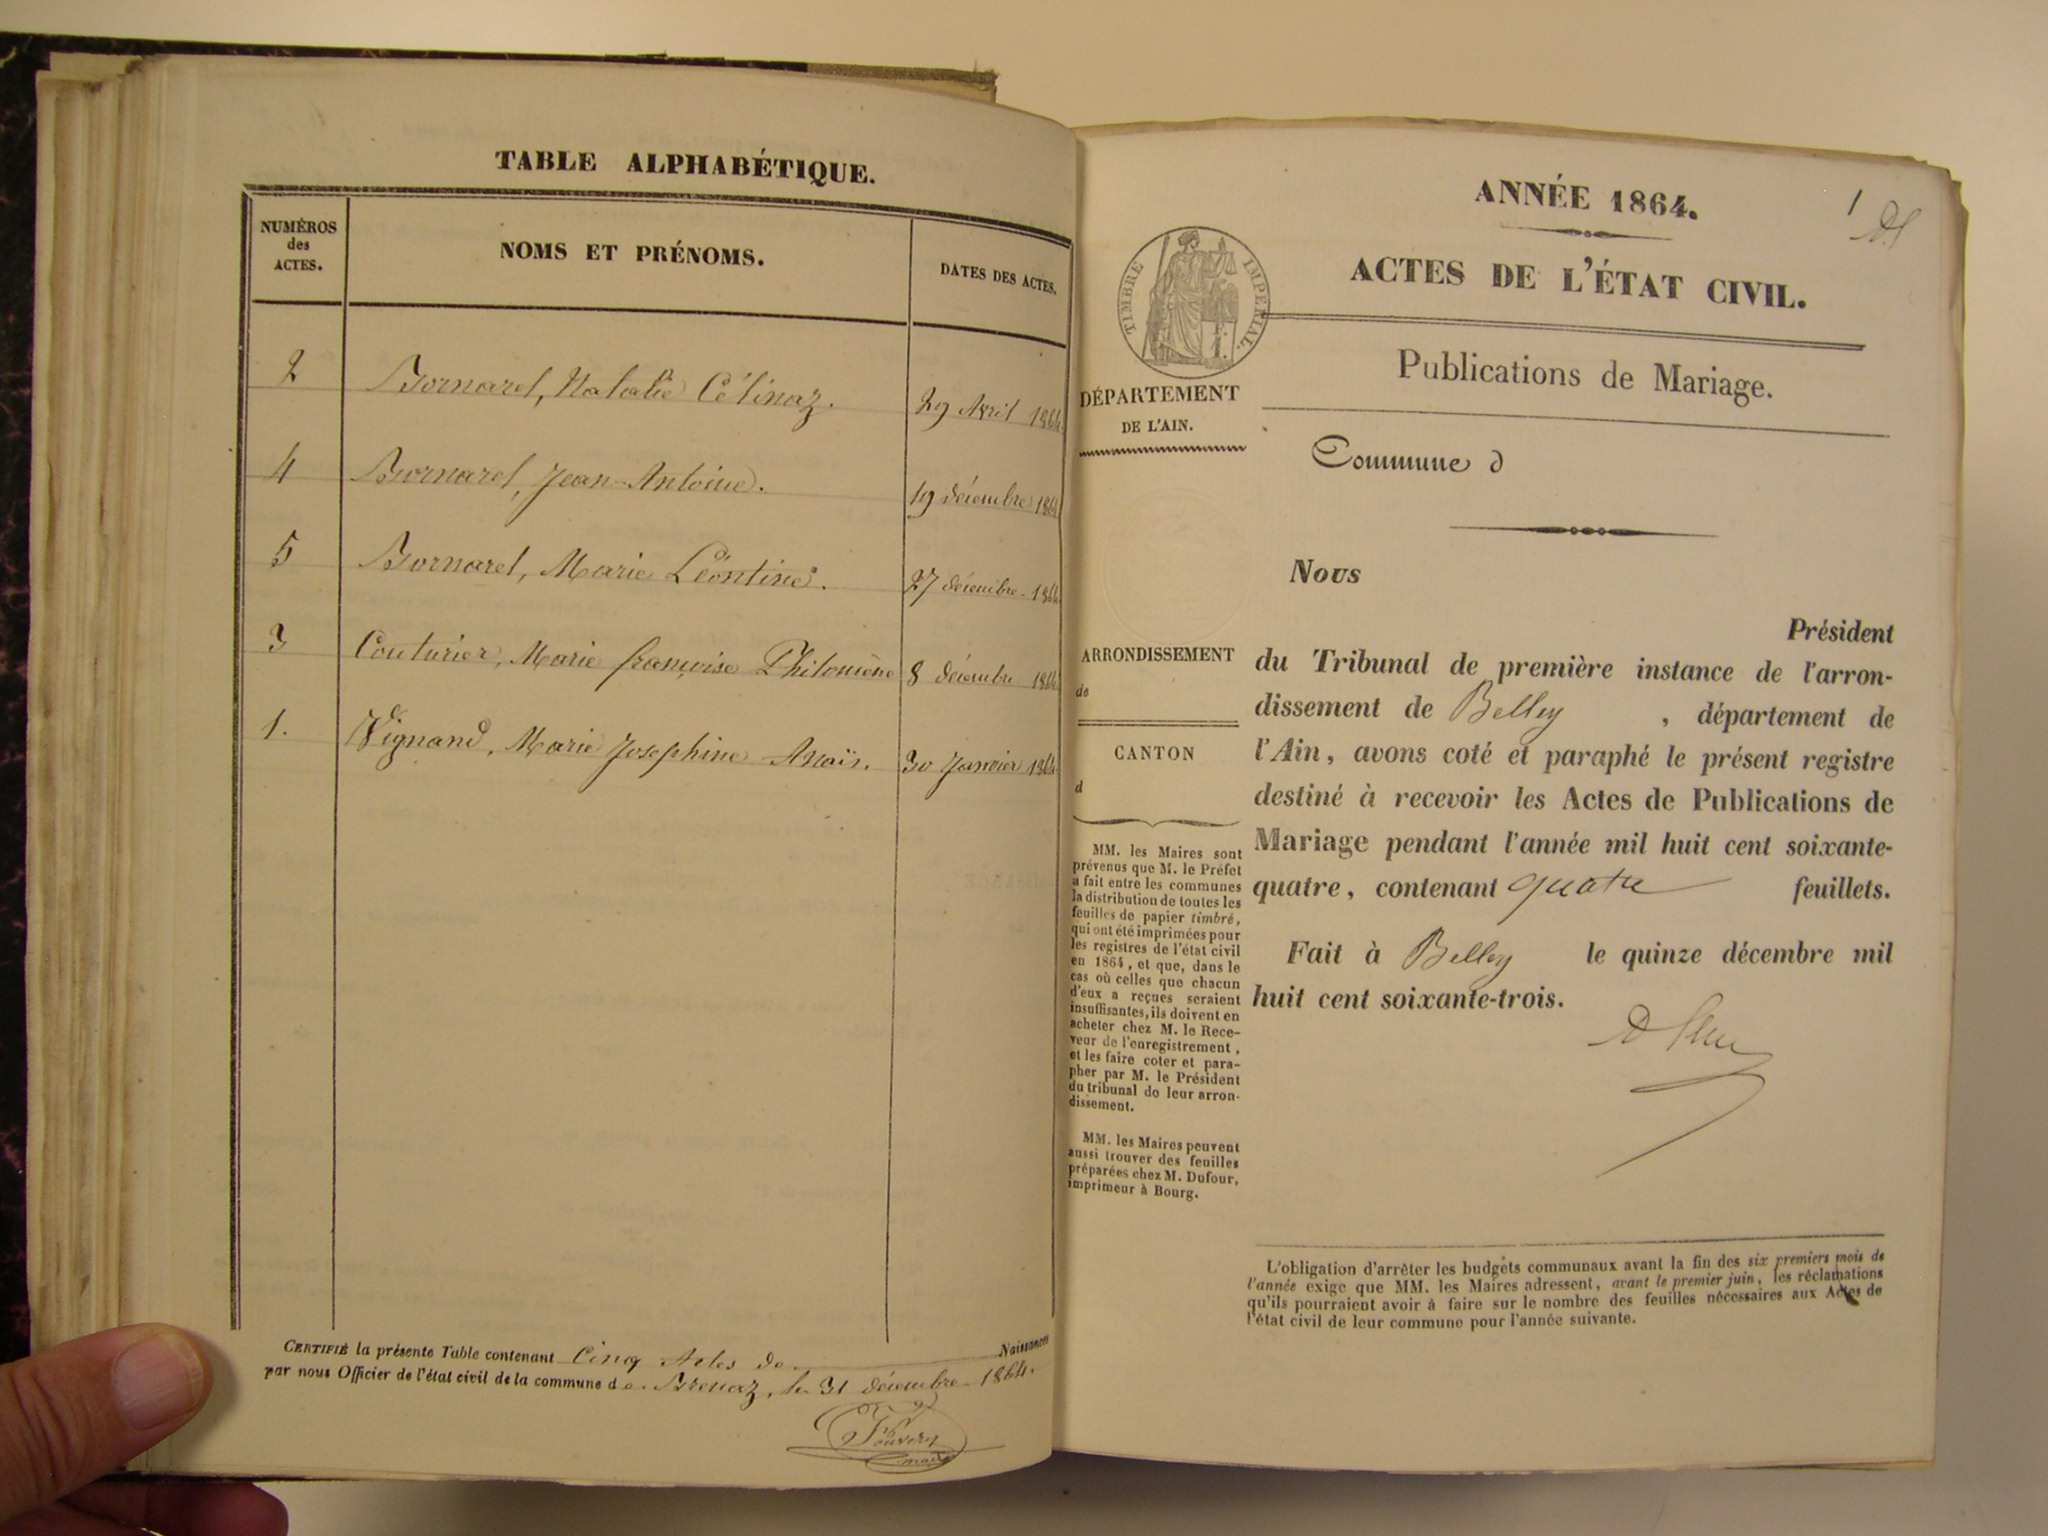 TABLE ALPHABÉTIQUE.
NUMÉROS
des
ACTES.
NOMS ET PRÉNOMS.
DATES DES ACTES.
2 Bornarel, Natalie Célinaz. 29 Avril 1864.
4 Bornarel, Jean-Antoine. 19 décembre 1864
5 Bornarel, Marie Léontine. 27 décembre 1864
3 Couturier, Marie françoise Philomène 8 décembre 1864
1. Vignand, Marie Josephine Anaïs. 30 Janvier 1864
CERTIFIÉ la présente Table contenant Cinq Actes de Naissances
par nous Officier de l'état civil de la commune de Brenaz, le 31 décembre 1864.
maire
1
ANNÉE 1864.
ACTES DE L'ÉTAT CIVIL.
TIMBRE IMPÉRIAL.
Publications de Mariage.
DÉPARTEMENT
DE L'AIN.
Commune d
ARRONDISSEMENT
de
CANTON
d
MM. les Maires sont
prévenus que M. le Préfet
a fait entre les communes
la distribution de toutes les
feuilles de papier timbré,
qui ont été imprimées pour
les registres de l'état civil
en 1864, et que, dans le
cas où celles que chacun
d'eux a reçues seraient
insuffisantes, ils doivent en
acheter chez M. le Rece-
veur de l'enregistrement,
et les faire coter et para-
pher par M. le Président
du tribunal de leur arron-
dissement.
MM. les Maires peuvent
aussi trouver des feuilles
préparées chez M. Dufour,
imprimeur à Bourg.
Nous
Président
du Tribunal de première instance de l'arron-
dissement de Belley , département de
l'Ain, avons coté et paraphé le présent registre
destiné à recevoir les Actes de Publications de
Mariage pendant l'année mil huit cent soixante-
quatre, contenant quatre feuillets.
Fait à Belley le quinze décembre mil
huit cent soixante-trois.
L'obligation d'arrêter les budgets communaux avant la fin des six premiers mois de
l'année exige que MM. les Maires adressent, avant le premier juin, les réclamations
qu'ils pourraient avoir à faire sur le nombre des feuilles nécessaires aux Actes de
l'état civil de leur commune pour l'année suivante.